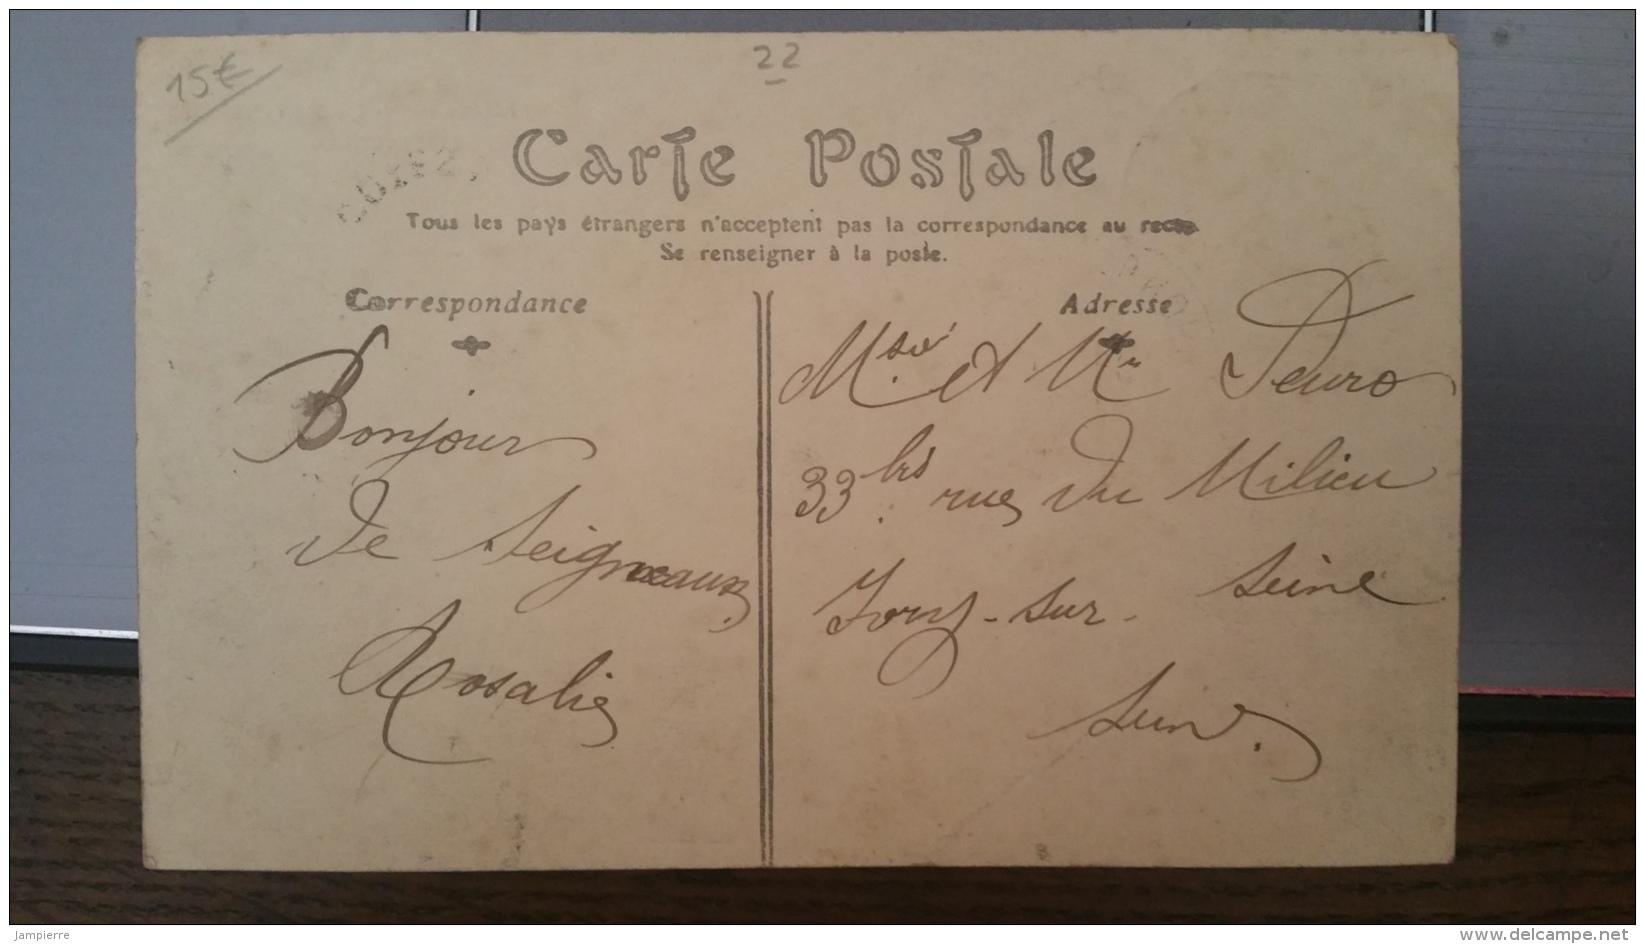 15€
22
Carte Postale
Tous les pays étrangers n'acceptent pas la correspondance au recto.
Se renseigner à la poste.
Correspondance
Bonjour
de Seigneaux
Rosalie
Adresse
et Mr Peuro
33 bis rue du Milieu
Ivry-sur-Seine
Seine.
Jampierre
www.delcampe.net